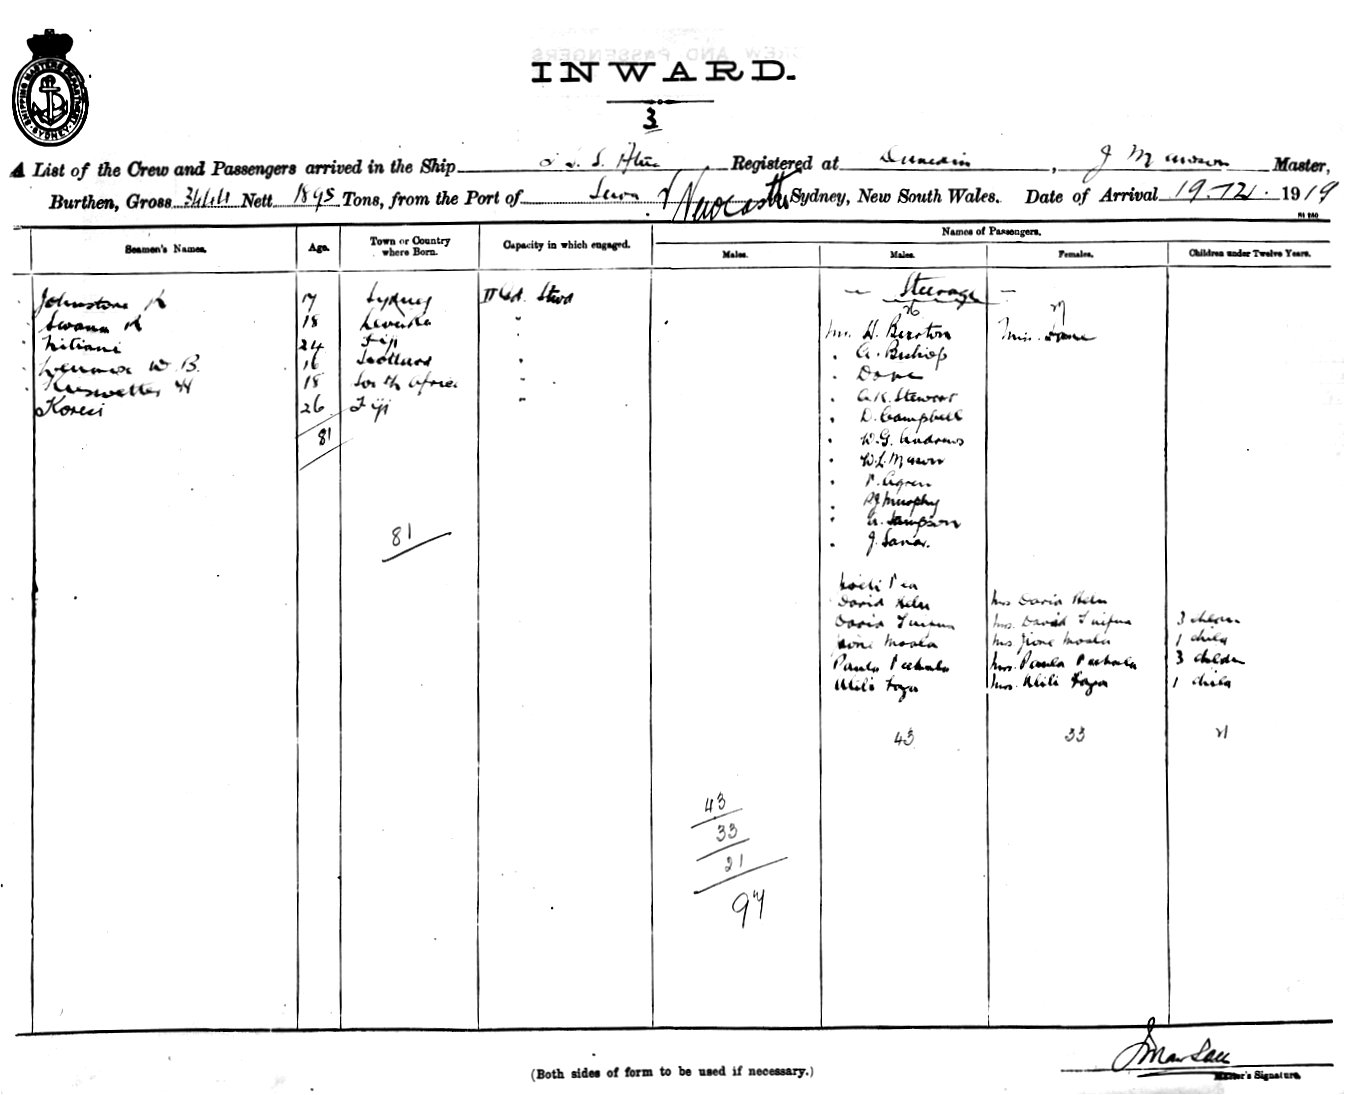 SHIPPING MASTERS DEPARTMENT SYDNEY
INWARD.
3
A List of the Crew and Passengers arrived in the Ship S. S. Atua, Registered at Dunedin, J Mawson Master,
Burthen, Gross 3444 Nett 1895 Tons, from the Port of Suva & Newcastle Sydney, New South Wales. Date of Arrival 19.12.1919
Seamen's Names. Age. Town or Country where Born. Capacity in which engaged. Names of Passengers.
Males. Males. Females. Children under Twelve Years.
Steerage
Johnstone 17 Sydney II Std. Stwd
Swann 18 Levuka "
Mr. H. Burton Miss
24 Fiji
W. B. 16 Scotland "
" A. Bishop
18 South Africa "
" Dove
Koresi 26 Fiji "
" A. K. Stewart
81
" D. Campbell
" W. G. Andrews
" W. L. Mason
" P. Agren
" P J Murphy
" Sampson
81
" J.
David Mrs David
David Mrs. David 3 children
Jione Moala Mrs Jione Moala 1 child
Paula Mrs. Paula 3 children
Mrs. 1 child
43 33 21
43
33
21
97
J Mawson
Master's Signature.
(Both sides of form to be used if necessary.)